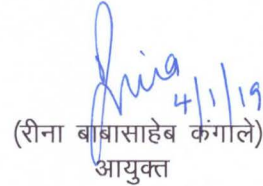 4/1/19
(रीना बाबासाहेब कंगाले)
आयुक्त